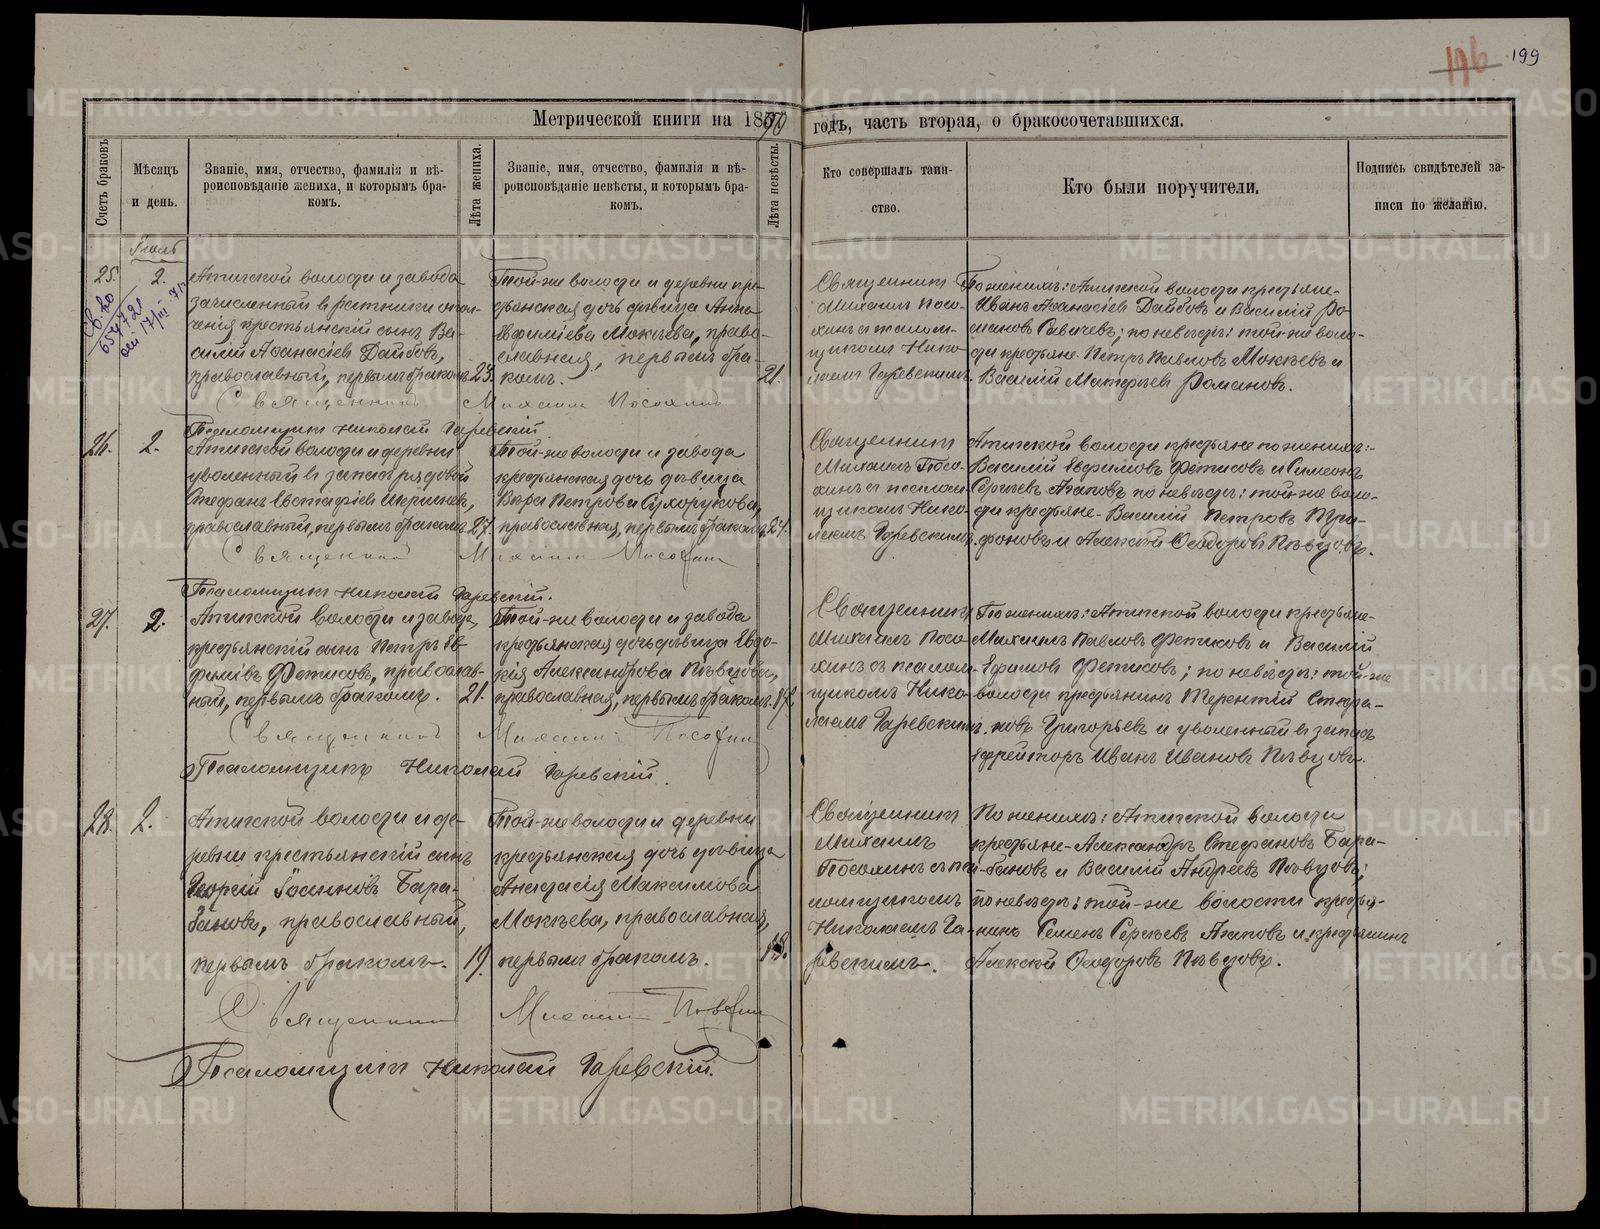 196 199
Метрической книги на 1890 годъ, часть вторая, о бракосочетавшихся.
Счетъ браковъ
Мѣсяцъ и день.
Званіе, имя, отчество, фамилія и вѣ-
роисповѣданіе жениха, и которымъ бра-
комъ.
Лѣта жениха.
Званіе, имя, отчество, фамилія и вѣ-
роисповѣданіе невѣсты, и которымъ бра-
комъ.
Лѣта невѣсты.
Кто совершалъ таин-
ство.
Кто были поручители.
Подпись свидѣтелей за-
писи по желанію.
25.
2.
Св. во
Атигской волости и завода
зачисленный въ ратники опол-
ченія крестьянскій сынъ Ва-
силій Аѳанасіевъ Дайбовъ,
православный, первымъ бракомъ.
23.
Той-же волости и деревни кре-
стьянская дочь дѣвица Анна
Евфиміева Мокѣева, право-
славная, первымъ бра-
комъ.
21.
Священникъ
Михаилъ Посо-
хинъ съ псалом-
щикомъ Нико-
лаемъ Гаревскимъ.
По женихѣ: Атигской волости крестьяне-
Иванъ Аѳанасіевъ Дайбовъ и Василій Ро-
мановъ Савичевъ; по невѣстѣ: той-же воло-
сти крестьяне Петръ Павловъ Мокѣевъ и
Василій Матѳеевъ Романовъ.
Священникъ Михаилъ Посохинъ
Псаломщикъ Николай Гаревскій.
26.
2.
Атигской волости и деревни
уволенный въ запасъ рядовой
Стефанъ Евстафіевъ
православный, первымъ бракомъ.
27.
Той-же волости и завода
крестьянская дочь дѣвица
Вѣра Петрова Сухорукова,
православная, первымъ бракомъ.
24.
Священникъ
Михаилъ Посо-
хинъ съ псалом-
щикомъ Нико-
лаемъ Гаревскимъ.
Атигской волости крестьяне по женихѣ:-
Василій Евфимовъ Фетисовъ и Симеонъ
Сергѣевъ Агаповъ по невѣстѣ: той-же воло-
сти крестьяне- Василій Петровъ Три-
фоновъ и Алексѣй Ѳеодоровъ Пѣвцовъ.
Священникъ Михаилъ Посохинъ
Псаломщикъ Николай Гаревскій.
27.
2.
Атигской волости и завода,
крестьянскій сынъ Петръ Ев-
фиміевъ Фетисовъ, православ-
ный, первымъ бракомъ.
21.
Той-же волости и завода
крестьянская дочь дѣвица Евдо-
кія Александрова Пѣвцова,
православная, первымъ бракомъ.
Священникъ
Михаилъ Посо-
хинъ съ псалом-
щикомъ Нико-
лаемъ Гаревскимъ.
По женихѣ: Атигской волости крестьяне-
Михаилъ Павловъ Фетисовъ и Василій
Ефимовъ Фетисовъ; по невѣстѣ: той-же
волости крестьянинъ Терентій Стефа-
новъ Григорьевъ и уволенный въ запасъ
ефрейторъ Иванъ Ивановъ Пѣвцовъ.
Священникъ Михаилъ Посохинъ
Псаломщикъ Николай Гаревскій.
28.
2.
Атигской волости и де-
ревни крестьянскій сынъ
Георгій Іоанновъ Бара-
бановъ, православный,
первымъ бракомъ.
19.
Той-же волости и деревни
крестьянская дочь дѣвица
Анастасія Максимова
Мокѣева, православная,
первымъ бракомъ.
18.
Священникъ
Михаилъ
Посохинъ съ пса-
ломщикомъ
Николаемъ Га-
ревскимъ.
По женихѣ: Атигской волости
крестьяне- Александръ Стефановъ Бара-
бановъ и Василій Андреевъ Пѣвцовъ;
по невѣстѣ: той-же волости крестья-
нинъ Семенъ Сергѣевъ Агаповъ и крестьянинъ
Алексѣй Ѳеодоровъ Пѣвцовъ.
Священникъ Михаилъ Посохинъ
Псаломщикъ Николай Гаревскій.
METRIKI.GASO-URAL.RU